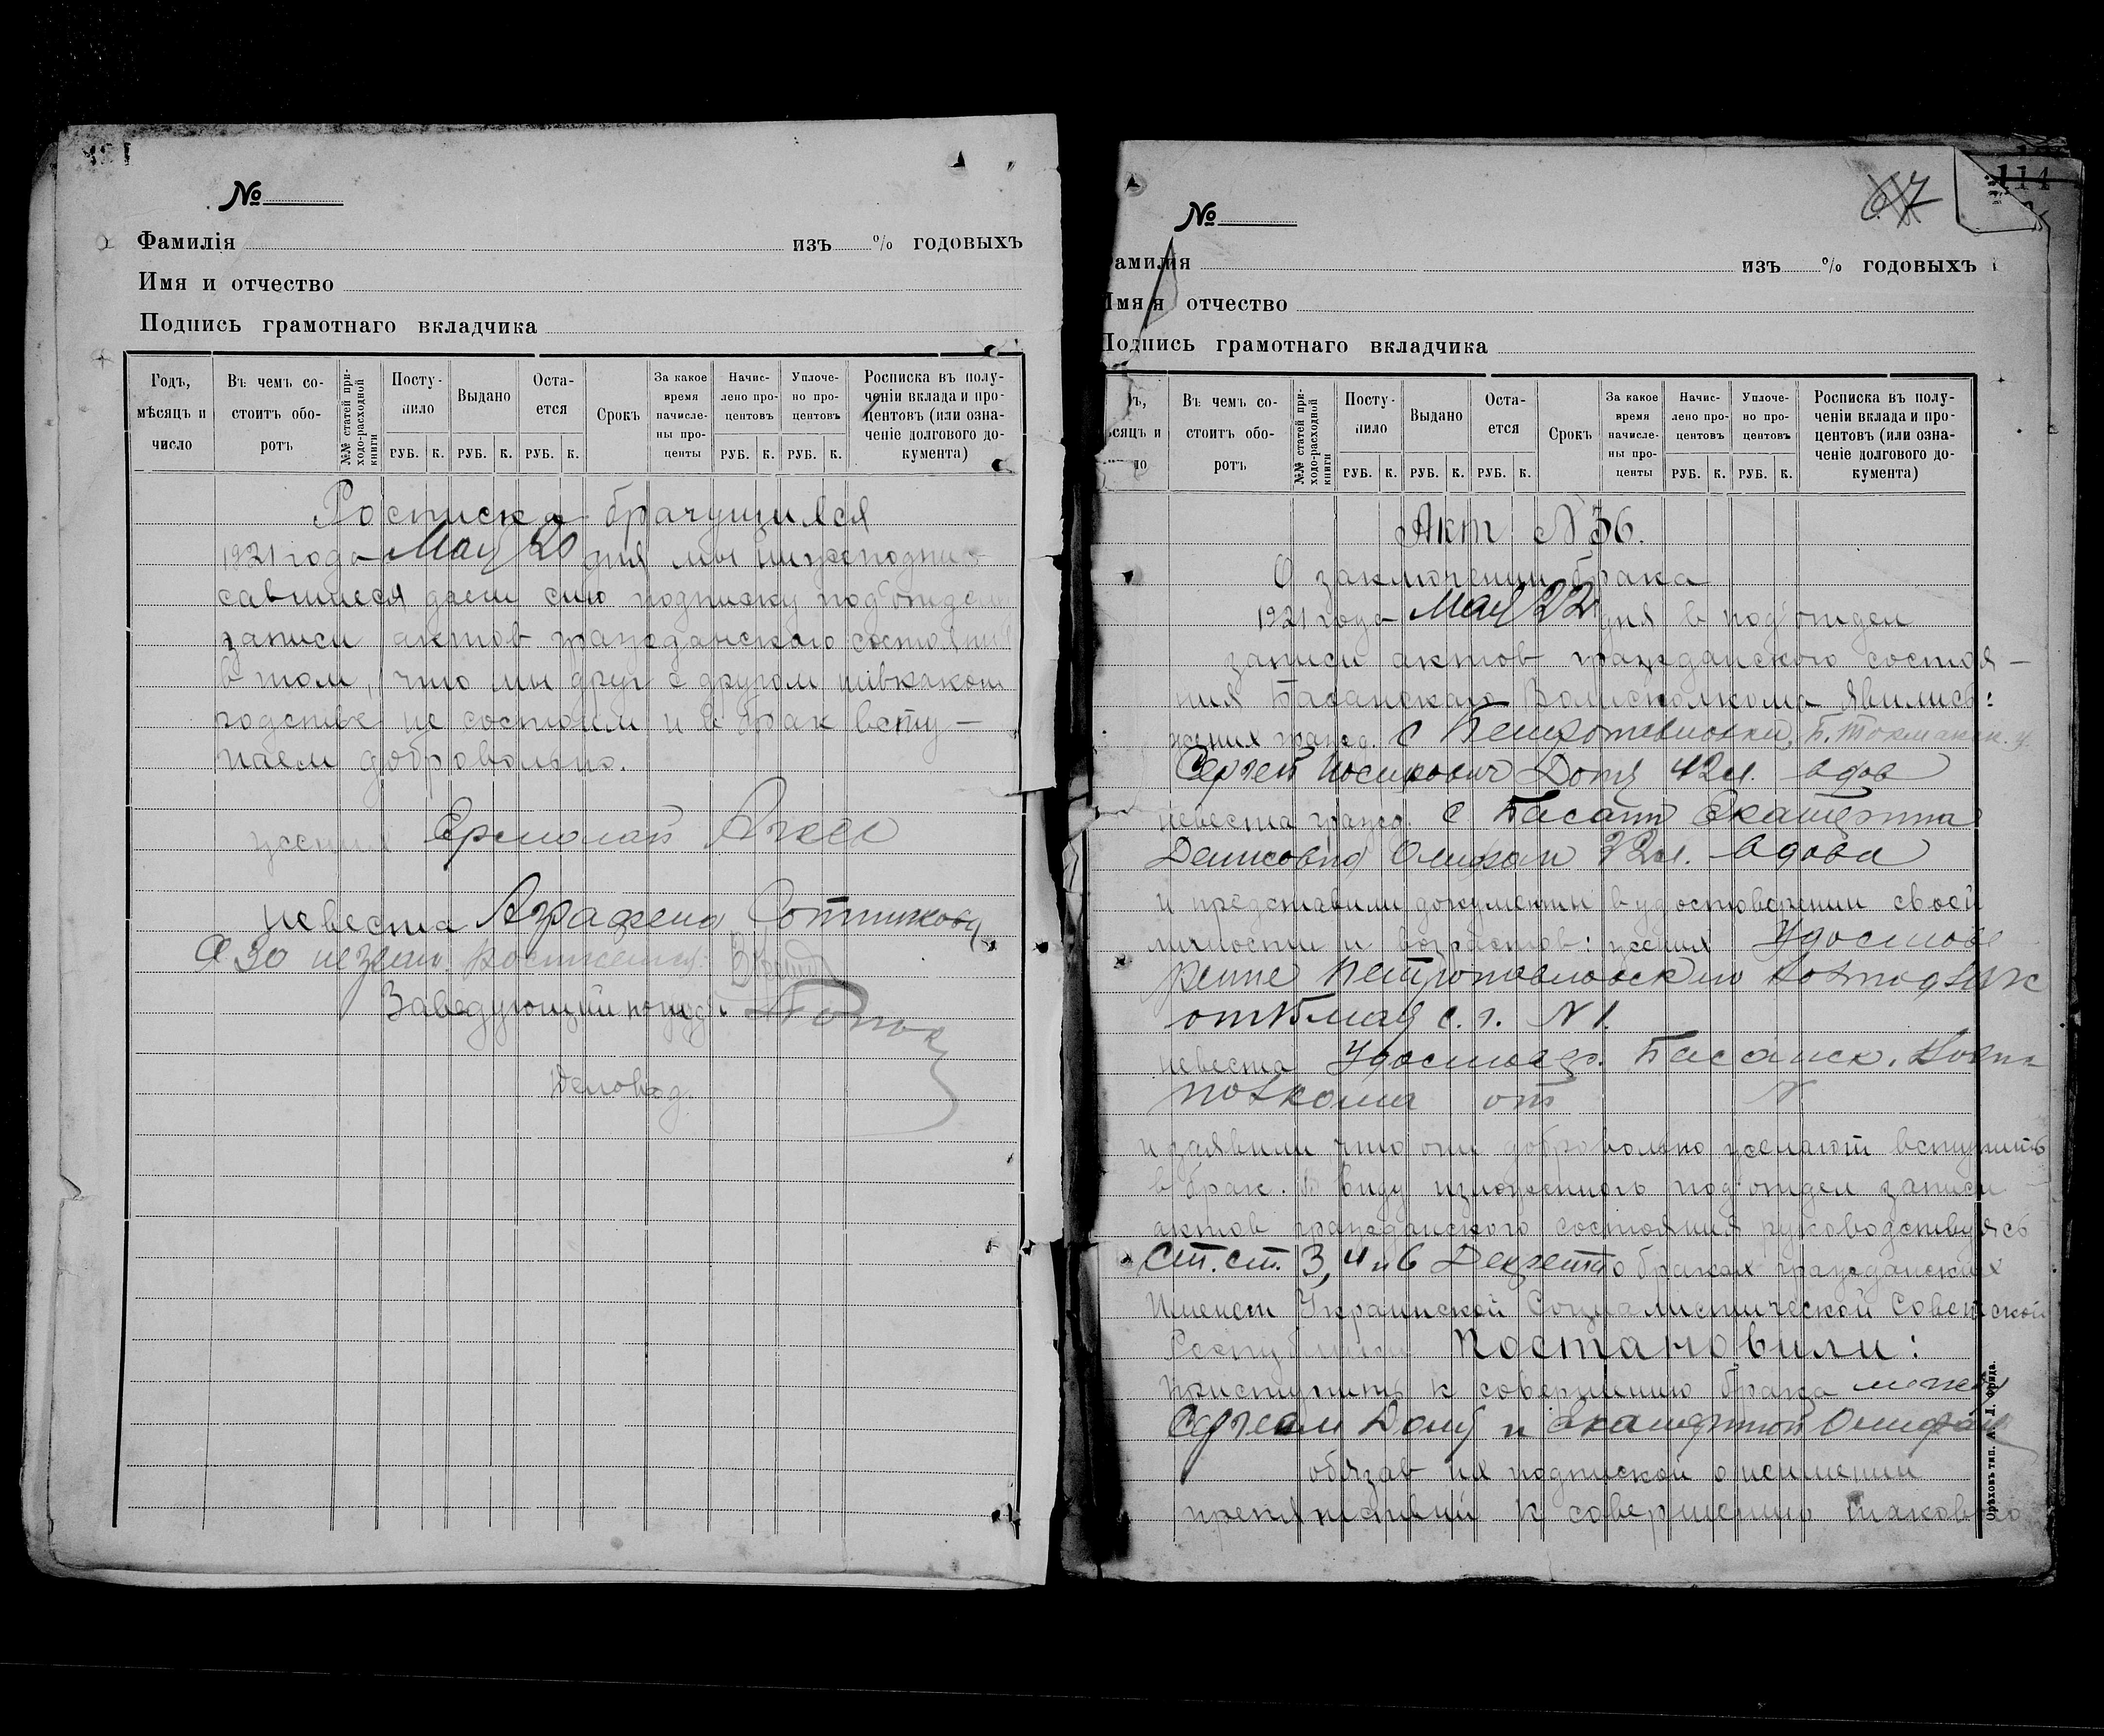 №
Фамилія из % годовыхъ
Имя и отчество
Подпись грамотнаго вкладчика
Годъ, мѣсяцъ и число
Въ чемъ состоитъ оборотъ
№№ статей приходо-расходной книги
Поступило
Выдано
Остается
Срокъ
За какое время начислены проценты
Начислено процентовъ
Уплочено процентовъ
Росписка въ полученіи вклада и процентовъ (или означеніе долгового документа)
РУБ. К. РУБ. К. РУБ. К. РУБ. К. РУБ. К.
Росписка брачущихся
1921 года Мая 20 дня мы нижеподпи-
савшиеся даем сию подписку под'отделу
записи актов гражданского состояния
в том, что мы друг с другом ни в каком
родстве не состоим и в брак всту-
паем добровольно.
жених Ермолай
невеста Аграфена Сотникова
А за негр.
Заведующий подотд. Попов
Деловод.
67
114
№
амилія изъ % годовыхъ
Имя и отчество
Подпись грамотнаго вкладчика
Въ чемъ состоитъ оборотъ
№№ статей приходо-расходной книги
Поступило
Выдано
Остается
Срокъ
За какое время начислены проценты
Начислено процентовъ
Уплочено процентовъ
Росписка въ полученіи вклада и процентовъ (или означеніе долгового документа)
РУБ. К. РУБ. К. РУБ. К. РУБ. К. РУБ. К.
Акт № 36.
О заключении брака
1921 года Мая 22 дня в под'отдел
записи актов гражданского состоя-
ния Басанскаго Волисполкома явились:
жених гражд. с Петропавловки, Б. Токмакск. у.
Сергей Иосипович Доля 42 л. вдов
невеста гражд. с Басань Екатерина
Денисовна Олифан 32 л. вдова
и представили документы в удостоверении своей
личности и возрастов: жених Удостове
рение Петропавловского
от Мая с. г. № 1.
невеста Удостовер. Басанск.
от №
и заявили что они добровольно желают вступить
в брак. В виду изложенного под'отдел записи
актов гражданского состояния руководствуясь
Ст. ст. 3, 4 и 6 Декрета о браках гражданских
Именем Украинской Социалистической Советской
Республики Постановили:
приступить к совершению брака между
Сергеем Доля и Екатериной Олифан
обязав их подпиской о неимении
препятствий к совершению такового
Орѣховъ тип. А. Л. Фрида.